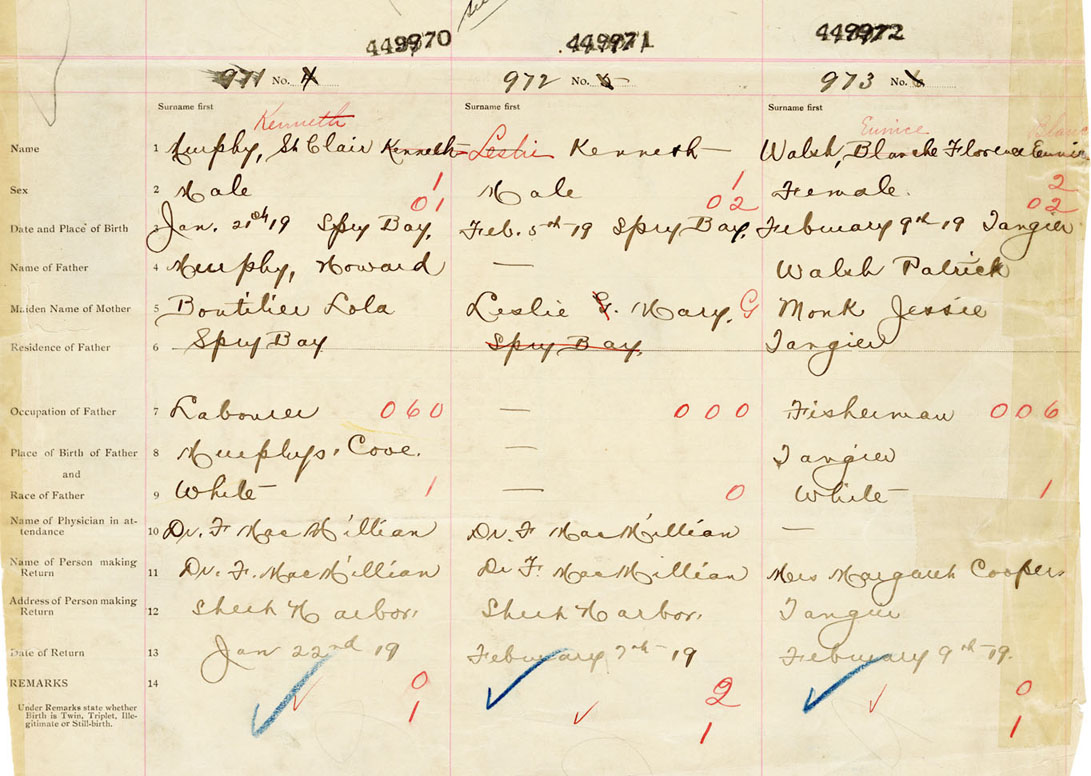 449970 449971 449972
971 No. 972 No. 973 No.
Surname first Surname first Surname first
Kenneth Eunice
Name 1 Murphy, St Clair Kenneth Leslie Kenneth Walsh, Blanche Florence Eunice
1 1 2
Sex 2 Male Male Female.
01 02 02
Date and Place of Birth 3 Jan. 21th 19 Spry Bay, Feb. 5th 19 Spry Bay, February 9th 19 Tangier
Name of Father 4 Murphy, Howard — Walsh Patrick
Maiden Name of Mother 5 Boutilier Lola Leslie G. Mary, G Monk Jessie
Residence of Father 6 Spry Bay Spry Bay, Tangier
Occupation of Father 7 Labourer 060 — 000 Fisherman 006
Place of Birth of Father 8 Murphys Cove. — Tangier
and
Race of Father 9 White 1 — 0 White 1
Name of Physician in at-
tendance 10 Dr. F MacMillian Dr. F MacMillian —
Name of Person making
Return 11 Dr. F. MacMillian Dr F. MacMillian Mrs Margaret Cooper
Address of Person making
Return 12 Sheet Harbor, Sheet Harbor, Tangier
Date of Return 13 Jan 22nd 19 February 7th 19 February 9th 19.
REMARKS 14 0 2 0
Under Remarks state whether
Birth is Twin, Triplet, Ille-
gitimate or Still-birth.
1 1 1